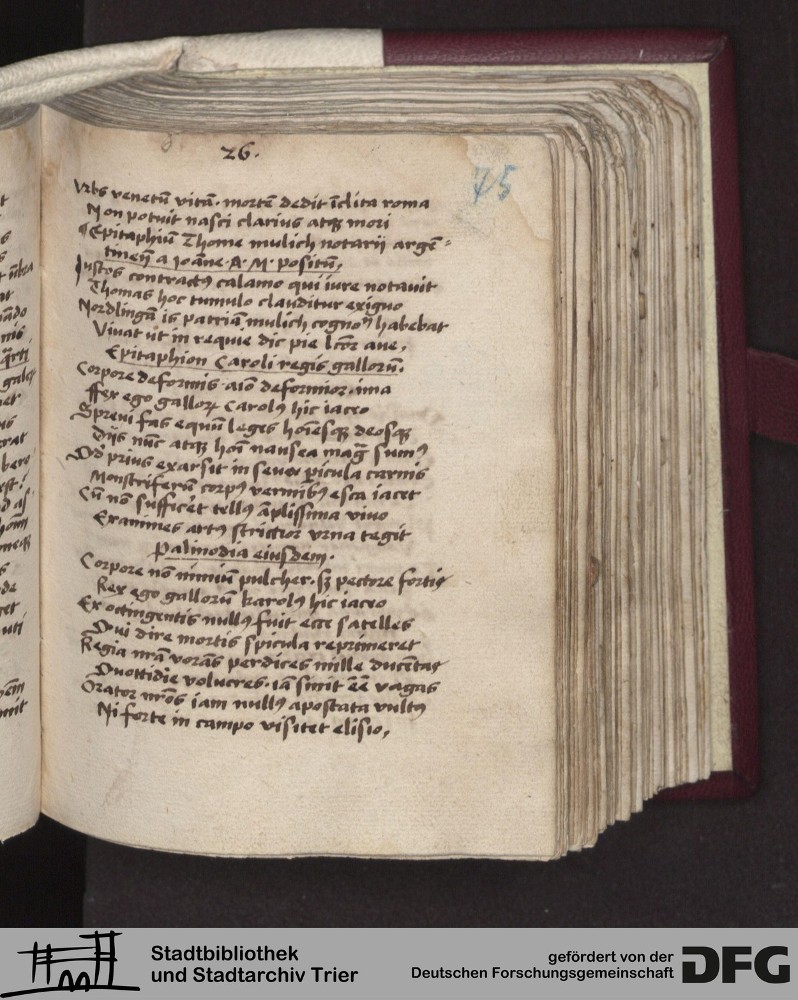 26.
75
Vrbs venetū vitā. mortē dedit īclita roma
Non potuit nasci clarius atqꝫ mori
Epitaphiū Thome mulich notarij argē⸗
tineñ a Joāne. A. M. positū,
Justos contractꝰ calamo qui iure notauit
Thomas hoc tumulo clauditur exiguo
Nordlingā is patriā mulich cognoīe habebat
Viuat ut in requie dic pie lc̄or aue,
Epitaphion Caroli regis gallorū.
Corpore deformis. aīo deformior. ima
ffex ego galloꝝ Carolꝰ hic iaceo
Spreui fas equū leges hoīesqꝫ deosqꝫ
Dijs nūc atqꝫ hoī nausea mag̃ sumꝰ
Qd̛ prius exarsit in seua pericula carnis
Monstriferū corpꝰ vermibꝰ esca iacet
Cū nō sufficēt tellꝰ āplissima viuo
Examines artꝰ strictior vrna tegit
Palinodia eiusdem.
Corpore nō nimiū pulcher. sꝫ pectore fortis
Rex ego gallorū karolꝰ hic iaceo
Ex octingentis nullꝰ fuit ecce satelles
Qui dire mortis spicula reprimeret
Regia mr̄a vorās perdices mille ducētas
Quottidie volucres. iā sinit eē vagas
Orator nr̄os iam nullꝰ apostata vultꝰ
Ni forte in campo visitet elisio,
Stadtbibliothek
und Stadtarchiv Trier
gefördert von der
Deutschen Forschungsgemeinschaft
DFG